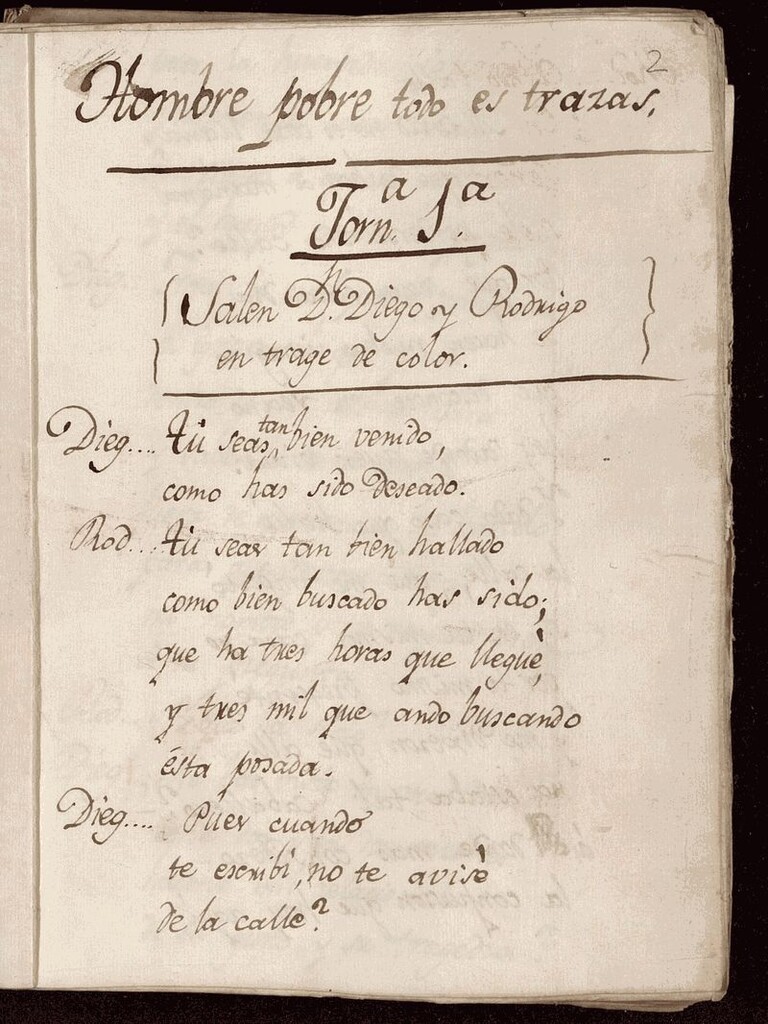 2
Hombre pobre todo es trazas.
Jorn.ª 1.ª
Salen D.n Diego y Rodrigo
en trage de color.
Dieg.... Tú seas tan bien venido,
como has sido deseado.
Rod... Tú seas tan bien hallado
como bien buscado has sido;
que ha tres horas que lleguè,
y tres mil que ando buscando
ésta posada.
Dieg.... Pues cuando
te escribí, no te avisè
de la calle?